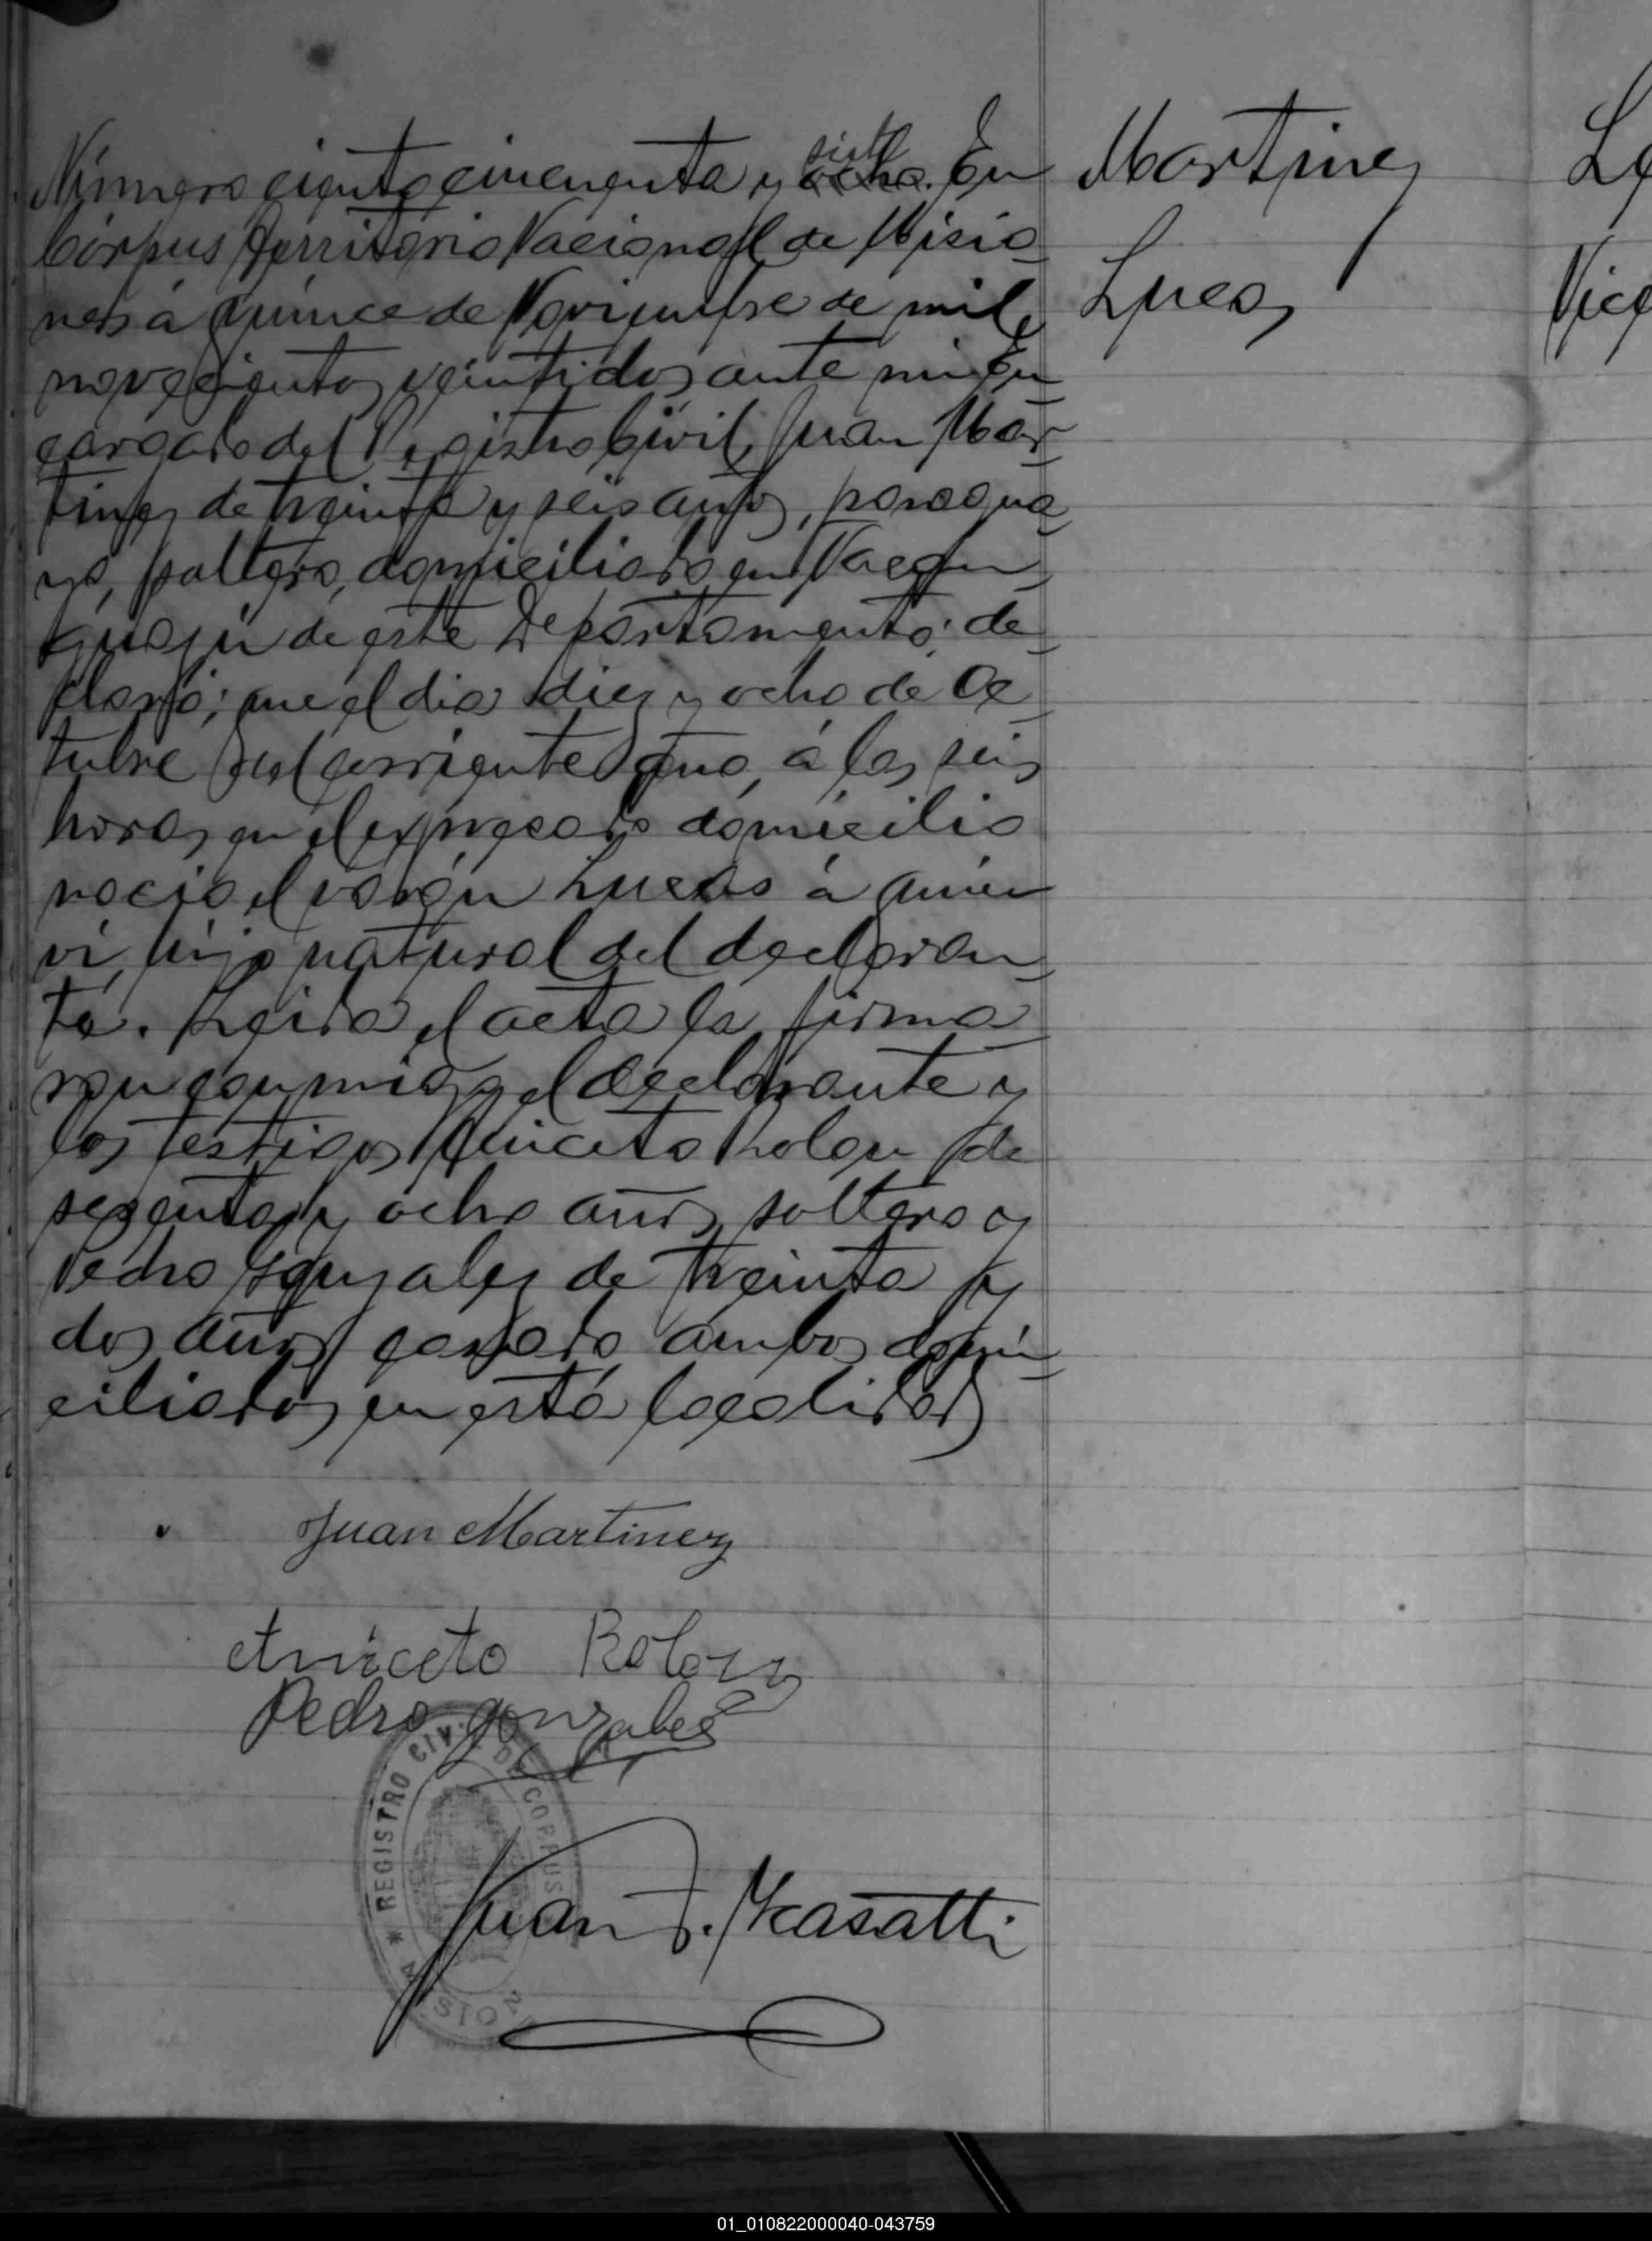 Número ciento cincuenta y siete ocho. En
Córpus Territorio Nacional de Misio-
nes á quince de Noviembre de mil
novecientos veintidos, ante mi En-
cargado del Registro Civil, Juan Mar-
tinez de treinta y seis años, paragua-
yo, soltero, domiciliado en Ñacan-
guazú de este Departamento; de-
claró; que el dia diez y ocho de Oc-
tubre del corriente año, á las seis
horas, en el expresado domicilio
nació el varón Lucas á quien
ví, hijo natural del declaran-
te. Leida el acta la firma-
ron conmigo el declarante y
los testigos Aniceto Rolon de
sesenta y ocho años, soltero y
Pedro Gonzalez de treinta y
dos años, casado ambos domi-
ciliados en esta localidad
Juan Martinez
Aniceto Rolon
Pedro gonzales
REGISTRO CIVIL DE CORPUS
MISIONES
Juan F.
Martinez
Lucas
01_010822000040-043759